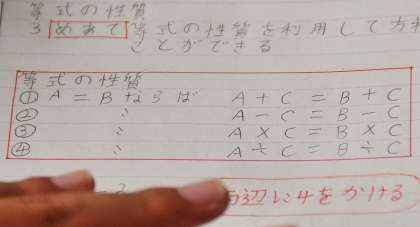 等式の性質
3 めあて 等式の性質を利用して方
ことができる
等式の性質
① A = B ならば A + C = B + C
② 〃 A − C = B − C
③ 〃 A × C = B × C
④ 〃 A ÷ C = B ÷ C
両辺に4をかける